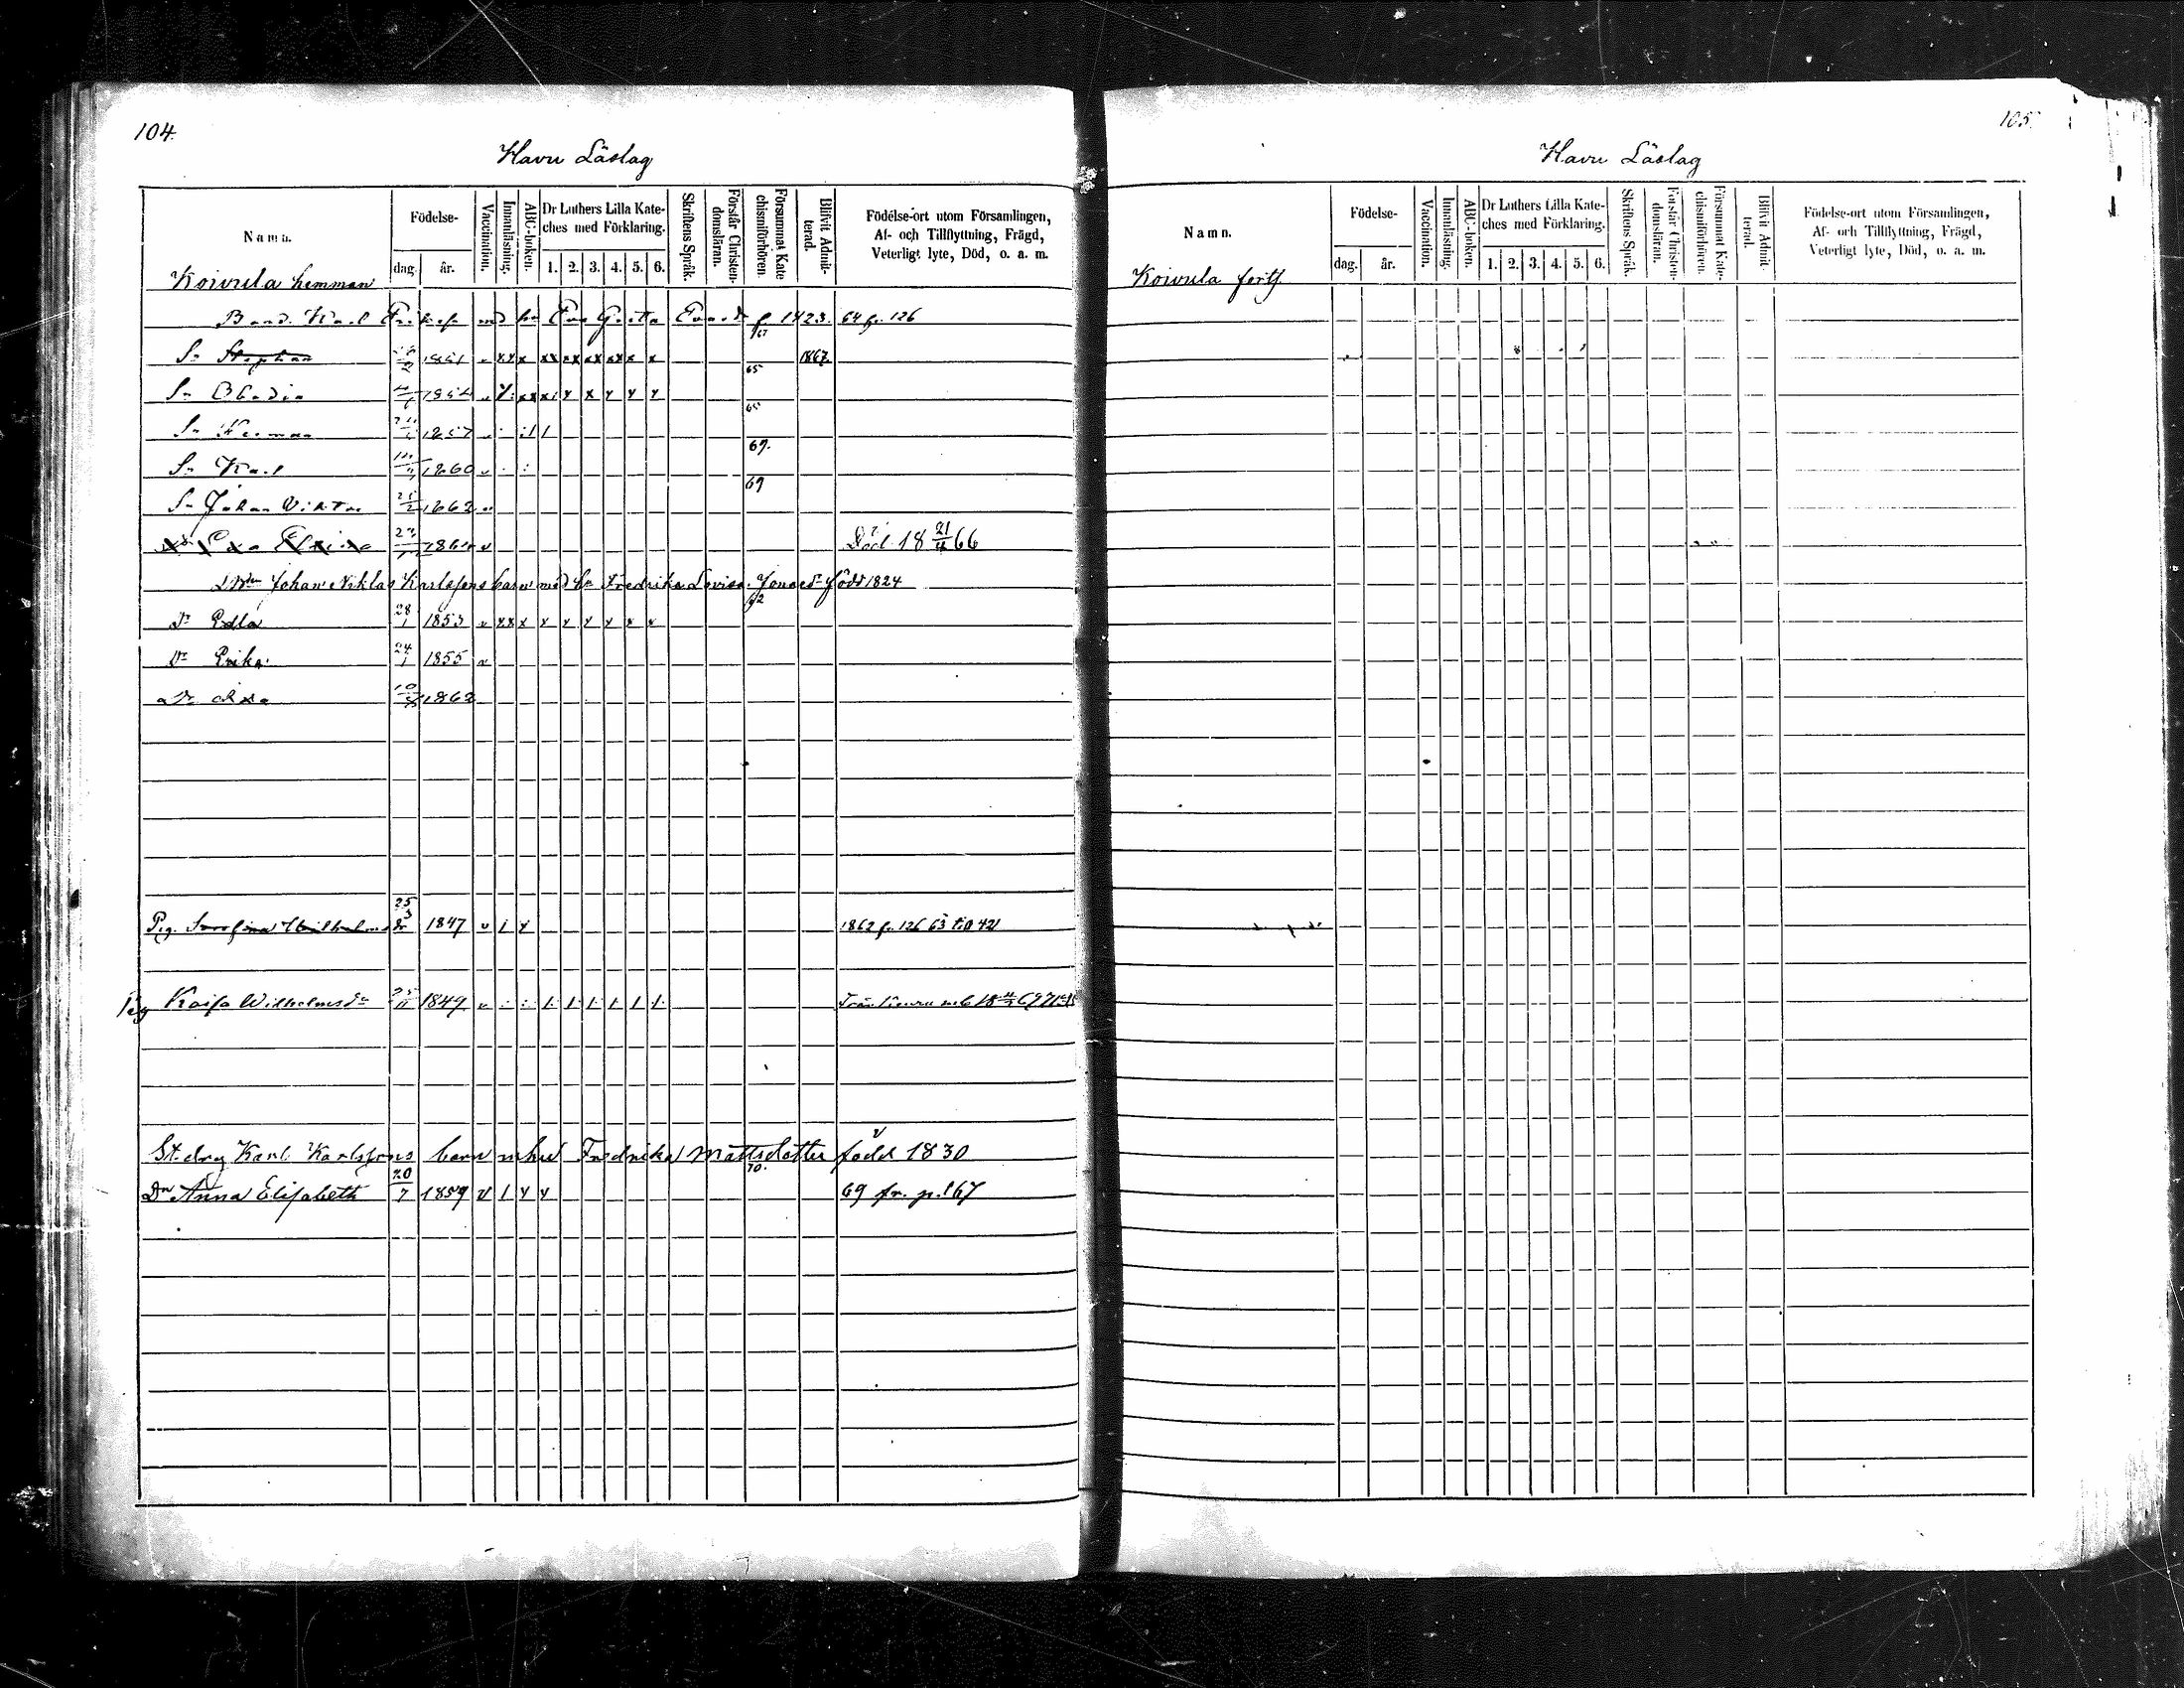 104.
Havu Läslag
Namn.
Födelse-
dag. år.
Vaccination.
Innanläsning.
ABC-boken.
Dr Luthers Lilla Kate-
ches med Förklaring.
1. 2. 3. 4. 5. 6.
Skriftens Språk.
Förstår Christen-
domsläran.
Försummat Kate
chismiförhören.
Blifvit Admit-
terad.
Födelse-ort utom Församlingen,
Af- och Tillflyttning, Frägd,
Veterligt lyte, Död, o. a. m.
Koivula hemman
Bond. Karl med hu Eva Greta 1823. 64 fr. 126
Sn Stephan 1851 v xx x xx xx xx xx x x 1867
65
Sn Obadia 1854
65
Sn Herman 1857
69.
Sn Karl 1860 v
69
Sn Johan Viktor 21/2 1862 v
Eva Elvina 1864 v Död 18 21/4 66
Johan Niklas Karlssons barn med hu Fredrika Lovisa Jonasdr född 1824
Dr Edla 28/1 1853 v xx x x x x x x x
Dr Erika 24/1 1855 v
Dr Ida 1862
Pig. Serafina Wilhelmsdr 25/3 1847 v 1 x 1862 fr. 126 63 till 421
Pig Kaisa Wilhelmsdr 25/11 1849 v
St.drg Karl Karlssons barn m hu Fredrika Mattsdotter född 1830
70.
Dr Anna Elisabeth 20/7 1859 v 1 x x 69 fr. p. 167
105
Havu Läslag
Namn.
Födelse-
dag. år.
Vaccination.
Innanläsning.
ABC-boken.
Dr Luthers Lilla Kate-
ches med Förklaring.
1. 2. 3. 4. 5. 6.
Skriftens Språk.
Förstår Christen-
domsläran.
Försummat Kate-
chismiförhören.
Blifvit Admit-
terad.
Födelse-ort utom Församlingen,
Af- och Tillflyttning, Frägd,
Veterligt lyte, Död, o. a. m.
Koivula forts.